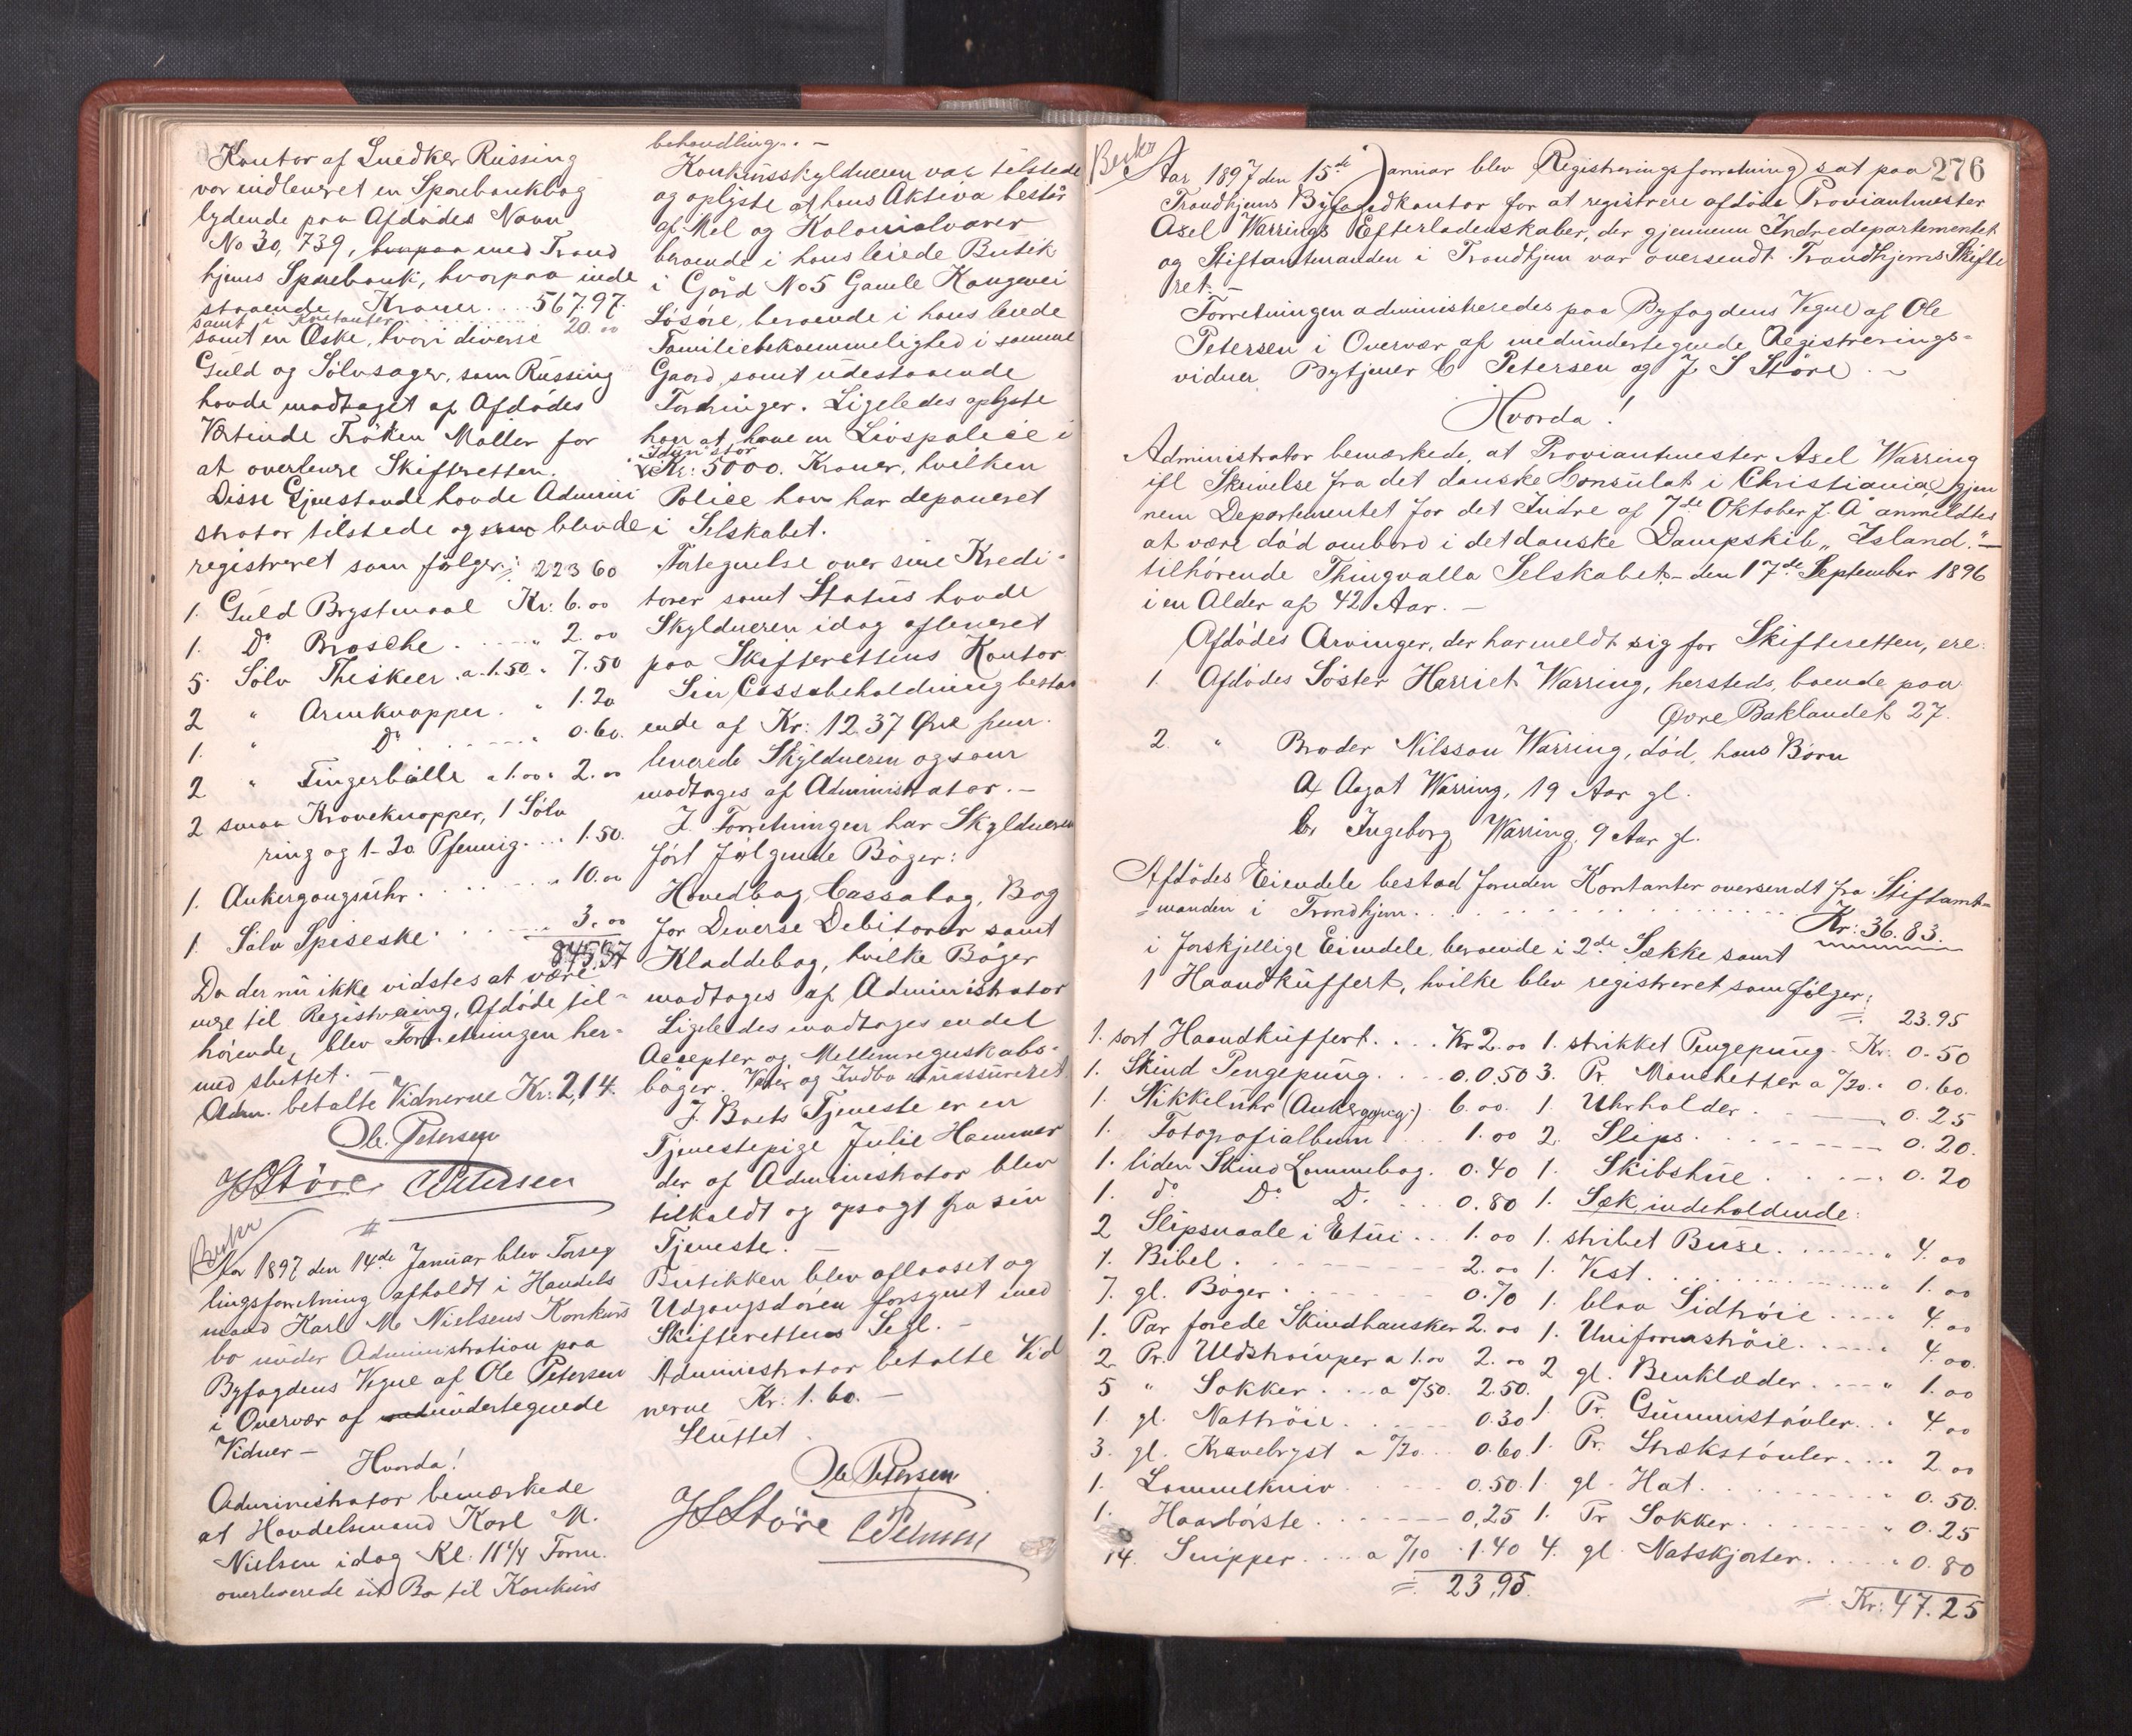 Kontor af Snedker Rüssing
var indleveret en Sparebankbog
lydende paa Afdødes Navn
No 30,739, med Trond
hjems Sparebank, hvorpaa inde
staaende Kroner ... 567.97.
samt i Kontanter ... 20.00
samt en Æske, hvori diverse
Guld og Sølvsager, som Rüssing
havde modtaget af Afdødes
Vertinde Frøken Møller for
at overlevere Skifteretten.
Disse Gjenstande havde Admini
strator tilstede og blevde
registreret som følger: 22360
1. Guld Brystnaal Kr: 6.00
1. Do Brosche ... " 2.00
5. Sölv Theskeer a 1.50 " 7.50
2 " Armknapper " 1.20
1. " Do ... " 0.60.
2 " Fingerbølle a 1.00 " 2.00
2 smaa Kraveknapper, 1 Sölv
ring og 1-20 Pfennig ... 1.50.
1. Ankergangsuhr ... " 10.00
1. Sölv Spiseske ... " 3.00
Da der nu ikke vidstes at være
mere til Registrering, Afdøde til-
hørende, blev Forretningen her-
med sluttet. —
Adm. betalte Vidnerne Kr: 2,14.
Ole Petersen
JSStöre CPetersen
Aar 1897 den 14de Januar blev Forseg
lingsforretning afholdt i Handels
mand Karl M. Nielsens Konkurs
bo under Administration paa
Byfogdens Vegne af Ole Petersen
i Overvær af undertegnede
Vidner —
Hvorda!
Administrator bemærkede
at Handelsmand Karl M.
Nielsen idag Kl. 11 1/4 Form.
overleverede sit Bo til Konkurs
behandling. —
Konkursskyldneren var tilstede
og oplyste at hans Aktiva består
af Mel og Kolonialvarer
beroende i hans leiede Butik
i Gård No 5 Gamle Kongevei
Løsøre, beroende i hans leiede
Familiebekvemmelighed i samme
Gaard samt udestaaende
Fordringer. Ligeledes oplyste
han at have en Livspolice i
"Idun" stor
Kr: 5000. Kroner, hvilken
Police han har deponeret
i Selskabet.
Fortegnelse over sine Kredi-
torer samt Status havde
Skyldneren idag afleveret
paa Skifterettens Kontor
Sin Cassabeholdning bestaa
ende af Kr: 12.37 Øre frem
leverede Skyldneren og som
modtages af Administrator. —
I Forretningen har Skyldneren
ført følgende Bøger:
Hovedbog, Cassabog, Bog
for Diverse Debitorer samt
Kladdebog, hvilke Bøger
modtages af Administrator
Ligeledes modtages endel
Accepter og Mellemregnskabs-
bøger. Varer og Indbo uassureret.
I Boets Tjeneste er en
Tjenestepige Julie Hammer
der af Administrator blev
tilkaldt og opsagt fra sin
Tjeneste. —
Butikken blev aflaaset og
Udgangsdøren forsynet med
Skifterettens Segl. —
Administrator betalte Vid
nerne Kr: 1.60. —
Sluttet.
Ole Petersen
JSStöre CPetersen
276
Aar 1897 den 15de Januar blev Registreringsforretning sat paa
Trondhjems Byfogdkontor for at registrere afdøde Proviantmester
Axel Warrings Efterladenskaber, der gjennem Indredepartementet
og Stiftamtmanden i Trondhjem var oversendt Trondhjems Skifte
ret. —
Forretningen administreredes paa Byfogdens Vegne af Ole
Petersen i Overvær af medundertegnede Registrerings-
vidner Bytjener C Petersen og J. S Störe. —
Hvorda!
Administrator bemærkede, at Proviantmester Axel Warring
ifl Skrivelse fra det danske Consulat i Christiania gjen
nem Departementet for det Indre af 7de Oktober f. A anmeldtes
at være død ombord i det danske Dampskib "Island." —
tilhørende Thingvalla Selskabet — den 17de September 1896
i en Alder af 42 Aar. —
Afdødes Arvinger, der har meldt sig for Skifteretten, ere:
1. Afdødes Søster Harriet Warring, hersteds, boende paa
Øvre Baklandet 27.
2. " Broder Nilsson Warring, død, hans Børn
a, Aagot Warring, 19 Aar gl.
b, Ingeborg Warring, 9 Aar gl.
Afdødes Eiendele bestod foruden Kontanter oversendt fra Stiftamt-
manden i Trondhjem ... Kr: 36.83.
i forskjellige Eiendele, beroende i 2de Sække samt
1 Haandkuffert, hvilke blev registreret som følger:
1. sort Haandkuffert .... Kr 2.00
1. Skind Pengepung ... 0.50
1. Nikkeluhr (Ankergang) 6.00
1. Fotografialbum ... 1.00
1. liden Skind Lommebog. 0.40
1. do Do Do ... 0.80
2 Slipsnaale i Etui ... 1.00
1. Bibel ... 2.00
7. gl. Bøger ... 0.70
1. Par forede Skindhansker 2.00
2 Pr. Uldstrømper a 1.00 2.00
5 " Sokker ... a 0/50. 2.50.
1. gl. Nattrøie ... 0.30
3. gl. Kravebryst a 0/20 ... 0.60
1. Lommekniv ... 0.50
1. Haarbørste ... 0,25
14. Snipper ... a 0/10 1.40
= 23,95.
= 23.95
1. strikket Pengepung Kr: 0.50
3. Pr. Manchetter a 0/20 " 0.60.
1 Uhrholder ... 0.25
2. Slips ... 0.20.
1. Skibshue ... 0.20
1. Sæk, indeholdende:
1. stribet Buse ... " 4.00
1. Vest ... " 1.00
1. blaa Sidtrøie ... " 4.00
1. Uniformstrøie ... " 4.00.
2 gl. Benklæder ... " 1.00
1 Pr. Gummistøvler ... " 4.00
1. Pr. Strækstøvler ... 2.00
1. gl. Hat ... " 0.50.
1. Pr Sokker ... " 0.25
4. gl. Natskjorter ... " 0.80
= Kr: 47.25